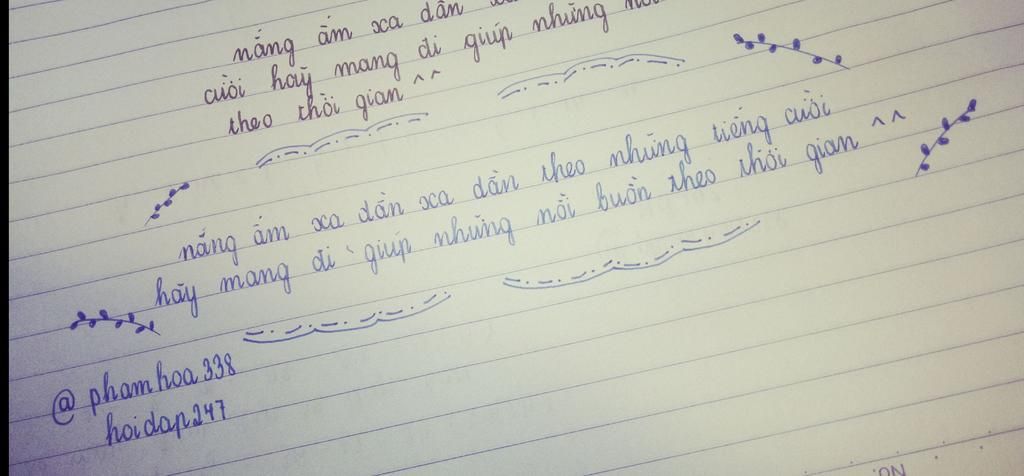 nắng ấm xa dần
cười hãy mang đi giúp những
theo thời gian ^^
nắng ấm xa dần xa dần theo những tiếng cười
hãy mang đi giúp những nỗi buồn theo thời gian ^^
@ phamhoa338
hoidap247